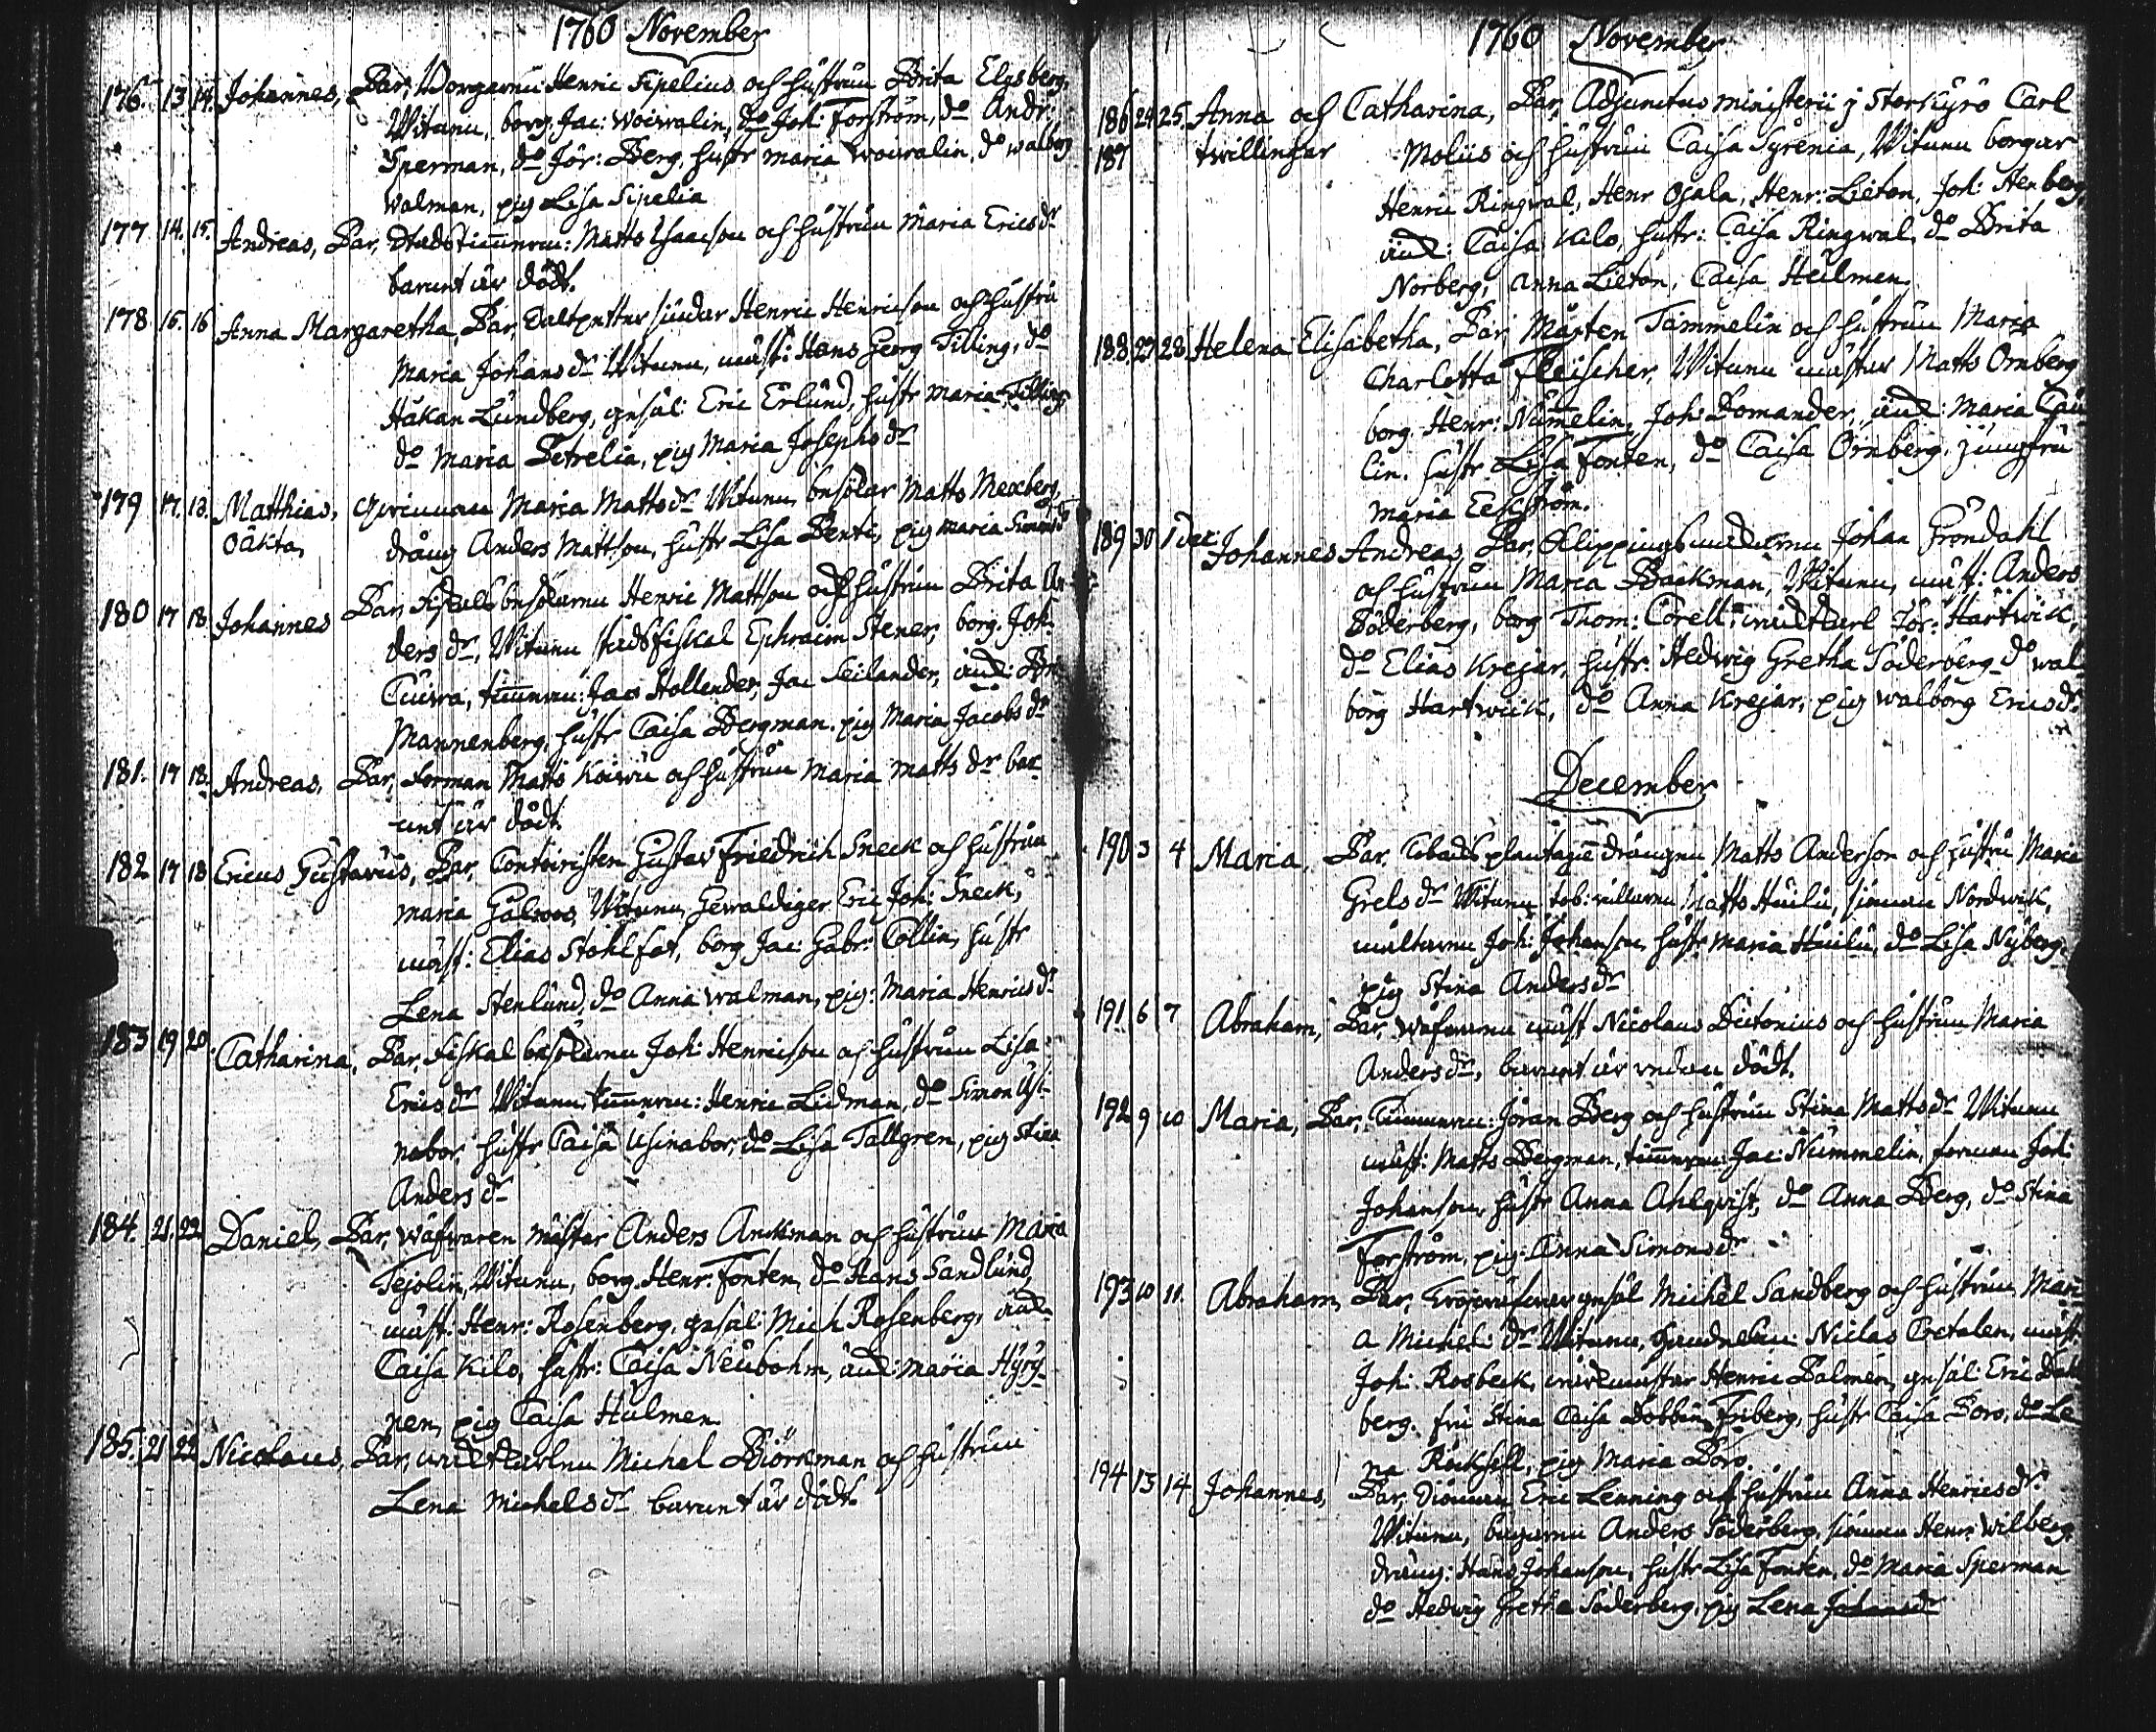 1760 November
176. 13 14. Johannes, Par, Borgaren Henric Sipelius och hustrun Brita Elgsberg,
Witnen, borg. Jac: Woivalin, do Joh: Forström, do Andr:
Sperman, do Jör: Berg, hustr Maria Woivalin, do Walborg
Walman, pig Lisa Sipelia
177 14. 15. Andreas, Par, Stadstimmerm: Matts Isaacson och hustrun Maria Ericsdr
barnet är dödt.
178. 15. 16 Anna Margaretha, Par, Henric Henricson och hustru
Maria Johansdr Witnen, mäst: Hans Georg Tilling, do
Håkan Lundberg, gesäl: Eric Erlund, hustr Maria Tilling
do Maria Petrelia, pig Maria Josephsdr
179 17. 18. Matthias, qvinnan Maria Mattsdr Witnen, besökar Matts Mexberg,
oäkta, dräng Anders Mattson, hustr Lisa Benti, pig Maria Simonsdr
180 17 18. Johannes Par, besökaren Henric Mattson och hustrun Brita An
dersdr, Witnen stadsfiskal Ephraim Stener, borg. Joh:
Cuiva, timmerm: Jac Hollender, Jac Seilander, änk: Bri
Mannenberg, hustr Caisa Bergman. pig Maria Jacobsdr
181. 17 18. Andreas, Par, Forman Matts Koivu och hustrun Maria Mattsdr bar
net är dödt.
182 17 18 Ericus Gustavus, Par, Contoiristen Gustav Friedrich Sneck och hustrun
Maria Witnen, Gewaldiger Eric Joh: Sneck,
mäst: Elias Stohlfot, borg Jac: Gabr: Collin, hustr
Lena Stenlund, do Anna Walman, pig: Maria Henricsdr
183 19 20. Catharina, Par, Fiskal besökaren Joh: Henricson och hustrun Lisa
Ericsdr Witnen, timmerm: Henric Lidman, do Simon Usi
nabor, hustr Caisa Usinabor, do Lisa Tallgren, pig Stina
Andersdr
184. 21. 22 Daniel, Par, wäfwaren mästar Anders Anckman och hustrun Maria
Tejolin, Witnen, borg. Henr: Fonten, do Hans Sandlund,
mäst: Henr: Rosenberg, gesäl: Mich Rosenberg, änk:
Caisa Kilo, hustr: Caisa Neubohm, änk: Maria Hyry
nen, pig Caisa Hulmen
185. 21 22 Nicolaus, Par, Michel Biörkman och hustrun
Lena Michelsdr barnet är dödt.
1760 November
186 24 25. Anna och Catharina, Par, Adjunctus ministerii j Storkyro Carl
187 twillingar Moliis och hustrun Caisa Syrenia, Witnen borgar
Henric Ringwal, Henr Osala, Henr: Lieton, Joh: Stenberg
änk: Caisa Kilo, hustr: Caisa Ringwal, do Brita
Norberg, Anna Lieton, Caisa Heilmen
188. 27 28 Helena Elisabetha, Par, Mårten Tammelin och hustrun Maria
Charlotta Fleischer, Witnen mäster Matts Ornberg
borg. Henr: Numelin, Joh: Bomander, änk: Maria Cau
lin, hustr Lisa Fonten, do Caisa Ornberg, jungfru
Maria Eekström.
189 30 1 dec Johannes Andreas, Par, Johan Gröndahl
och hustrun Maria Backman, Witnen, mäst: Anders
Söderberg, borg Thom: Corell: Jör: Hartwick,
do Elias Krejar, hustr: Hedwig Gretha Söderberg do Wal
borg Hartwick, do Anna Krejar, pig Walborg Ericsdr
December
190 3 4 Maria, Par, Tobaksplantagie drängen Matts Anderson och hustru Maria
Grelsdr Witnen, Matts Huilu, siöman Nordwik,
Joh: Johanson, hustr Maria Huilu, do Lisa Nyberg,
pig Stina Andersdr
191. 6 7 Abraham, Par, Wäfwaren mäst Nicolaus Dictonius och hustrun Maria
Andersdr, barnet är redan dödt.
192 9 10 Maria, Par, Timmerm: Jöran Berg och hustrun Stina Mattsdr Witnen
mäst: Matts Bergman, timmerm: Jac: Nummelin, forman Joh:
Johanson, hustr Anna Ahlqvist, do Anna Berg, do Stina
Forström, pig: Anna Simonsdr
193 10 11. Abraham, Par, gesäl Michel Sandberg och hustrun Mari
a Michelsdr Witnen, Niclas Cretalen, mäst
Joh: Rosbeck, mästar Henric Palmen, gesäl: Eric
berg. fru Stina Caisa Dobbin, Friberg, hustr Caisa Boro, do Le
na Röcksell, pig Maria Boro.
194 13 14 Johannes, Par, Siöman Eric Lenning och hustrun Anna Henricsdr
Witnen, Anders Söderberg, siöman Henr: Wilberg,
dräng: Hans Johanson, hustr Lisa Fonten, do Maria Sperman
do Hedwig Gretha Söderberg, pig Lena Johansdr